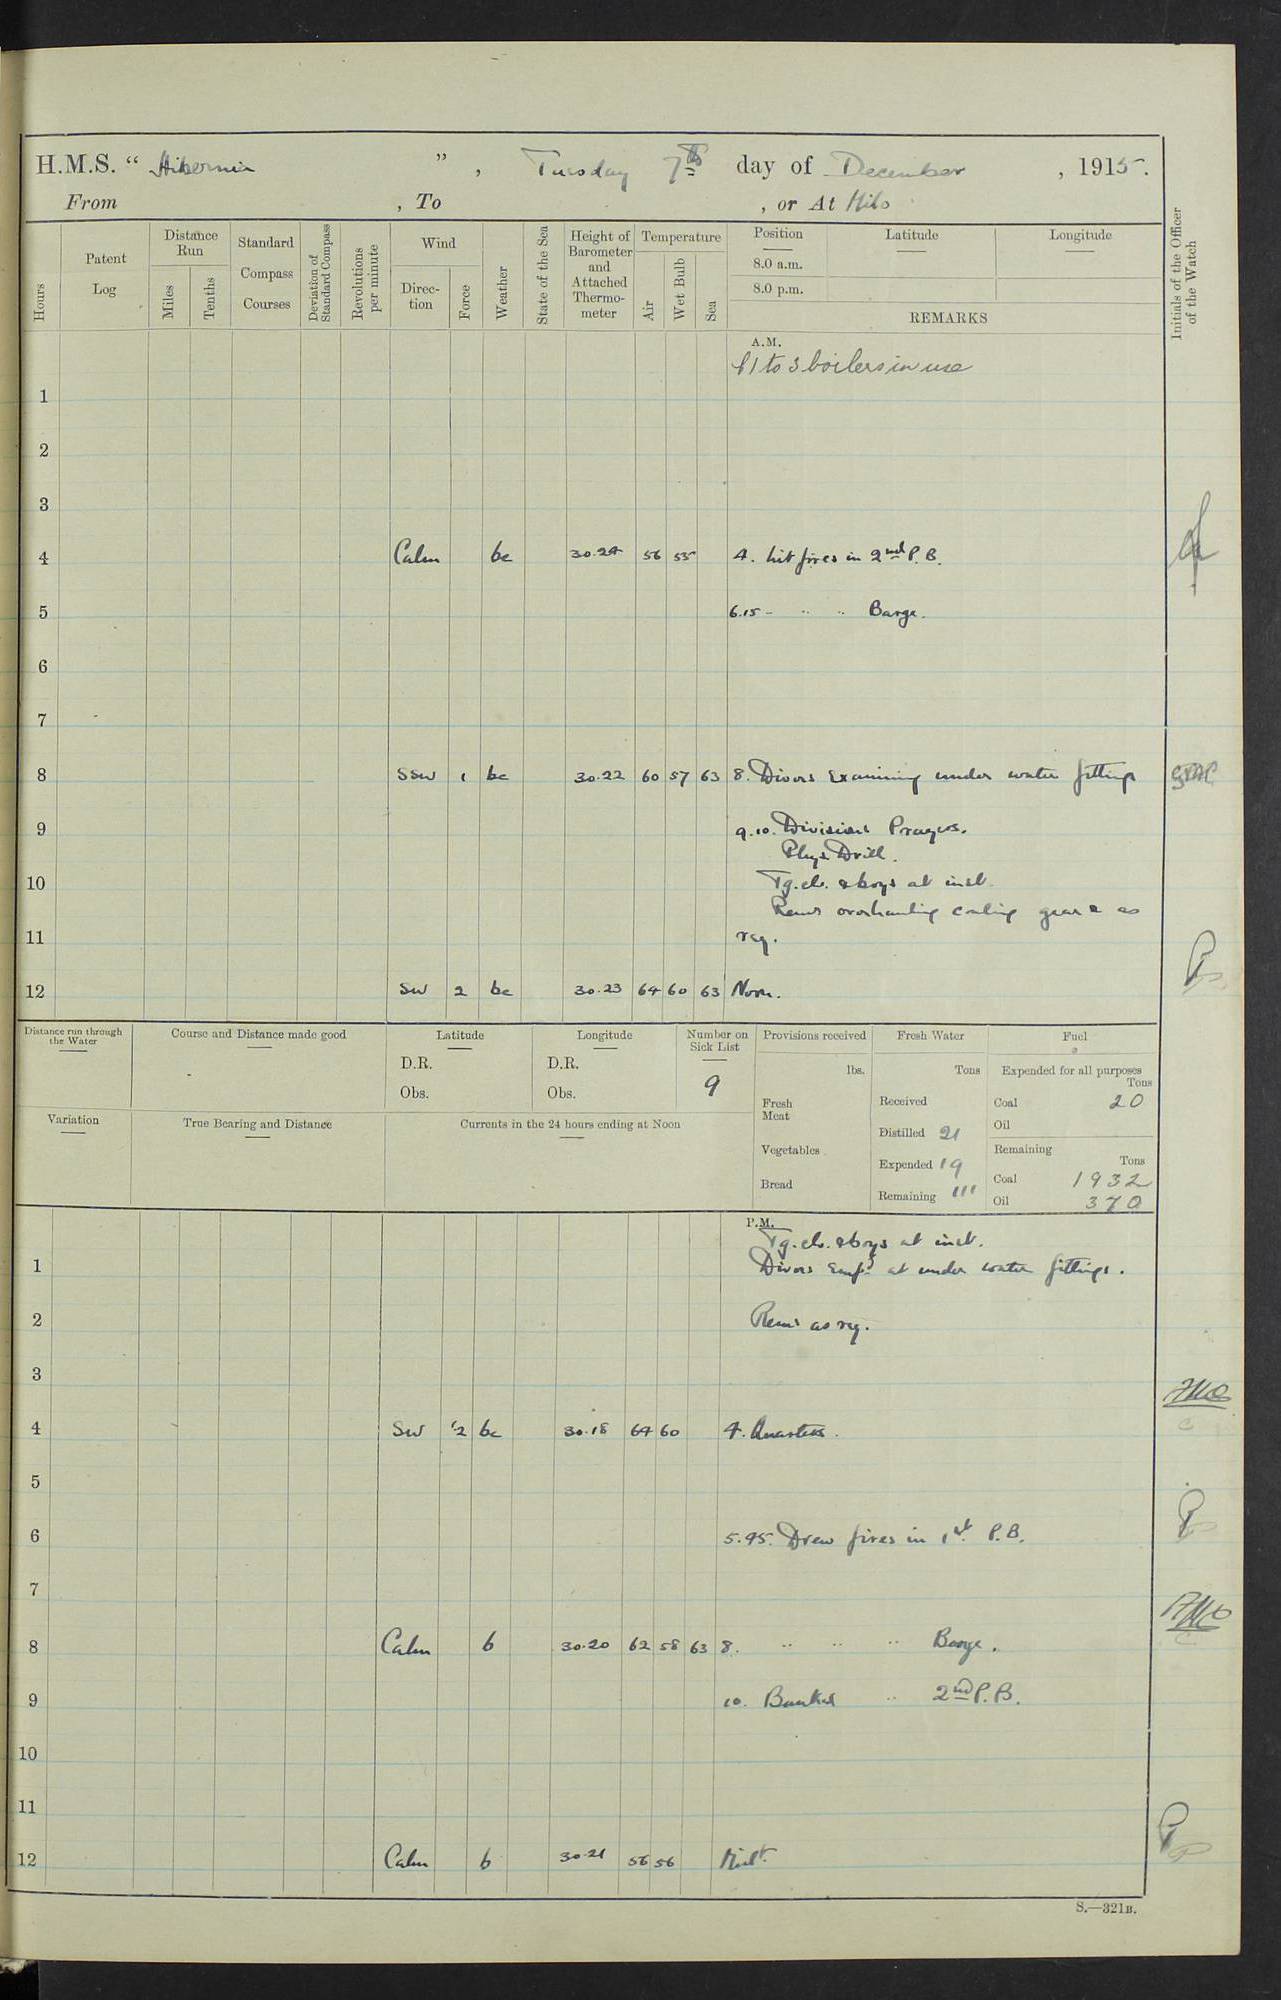 H.M.S. “ Hibernia ”, Tuesday 7th day of December, 1915.
From , To , or At Milo
Hours
Patent Log
Distance Run
Miles
Tenths
Standard Compass Courses
Deviation of Standard Compass
Revolutions per minute
Wind
Direction
Force
Weather
State of the Sea
Height of Barometer and Attached Thermometer
Temperature
Air
Wet Bulb
Sea
Position
8.0 a.m.
8.0 p.m.
Latitude
Longitude
REMARKS
Initials of the Officer of the Watch
A.M.
1 to 3 boilers in use
1
2
3
4 Calm bc 30.24 56 55 4. Lit fires in 2nd P.B.
5 6.15 - " " Barge.
6
7
8 SSW 1 bc 30.22 60 57 63 8. Divers Examining under water fittings
9 9.10. Divisions Prayers.
Phys. Drill.
10 Tg. cls. & boys at inst.
Remr overhauling coaling gear & as
11 req.
12 SW 2 bc 30.23 64 60 63 Noon.
Distance run through the Water
Course and Distance made good
Latitude
D.R.
Obs.
Longitude
D.R.
Obs.
Number on Sick List
9
Provisions received
lbs.
Fresh Meat
Vegetables
Bread
Fresh Water
Tons
Received
Distilled 21
Expended 19
Remaining 111
Fuel
Expended for all purposes
Tons
Coal 20
Oil
Remaining
Tons
Coal 1932
Oil 370
Variation
True Bearing and Distance
Currents in the 24 hours ending at Noon
P.M.
Tg. cls. & boys at inst.
1 Divers Empd at under water fittings.
2 Remr as req.
3
4 SW 1/2 bc 30.18 64 60 4. Quarters.
5
6 5.45. Drew fires in 1st P.B.
7
8 Calm b 30.20 62 58 63 8. " " " Barge.
9 10. Banked " 2nd P.B.
10
11
12 Calm b 30.21 56 56 Midt.
S.—321B.